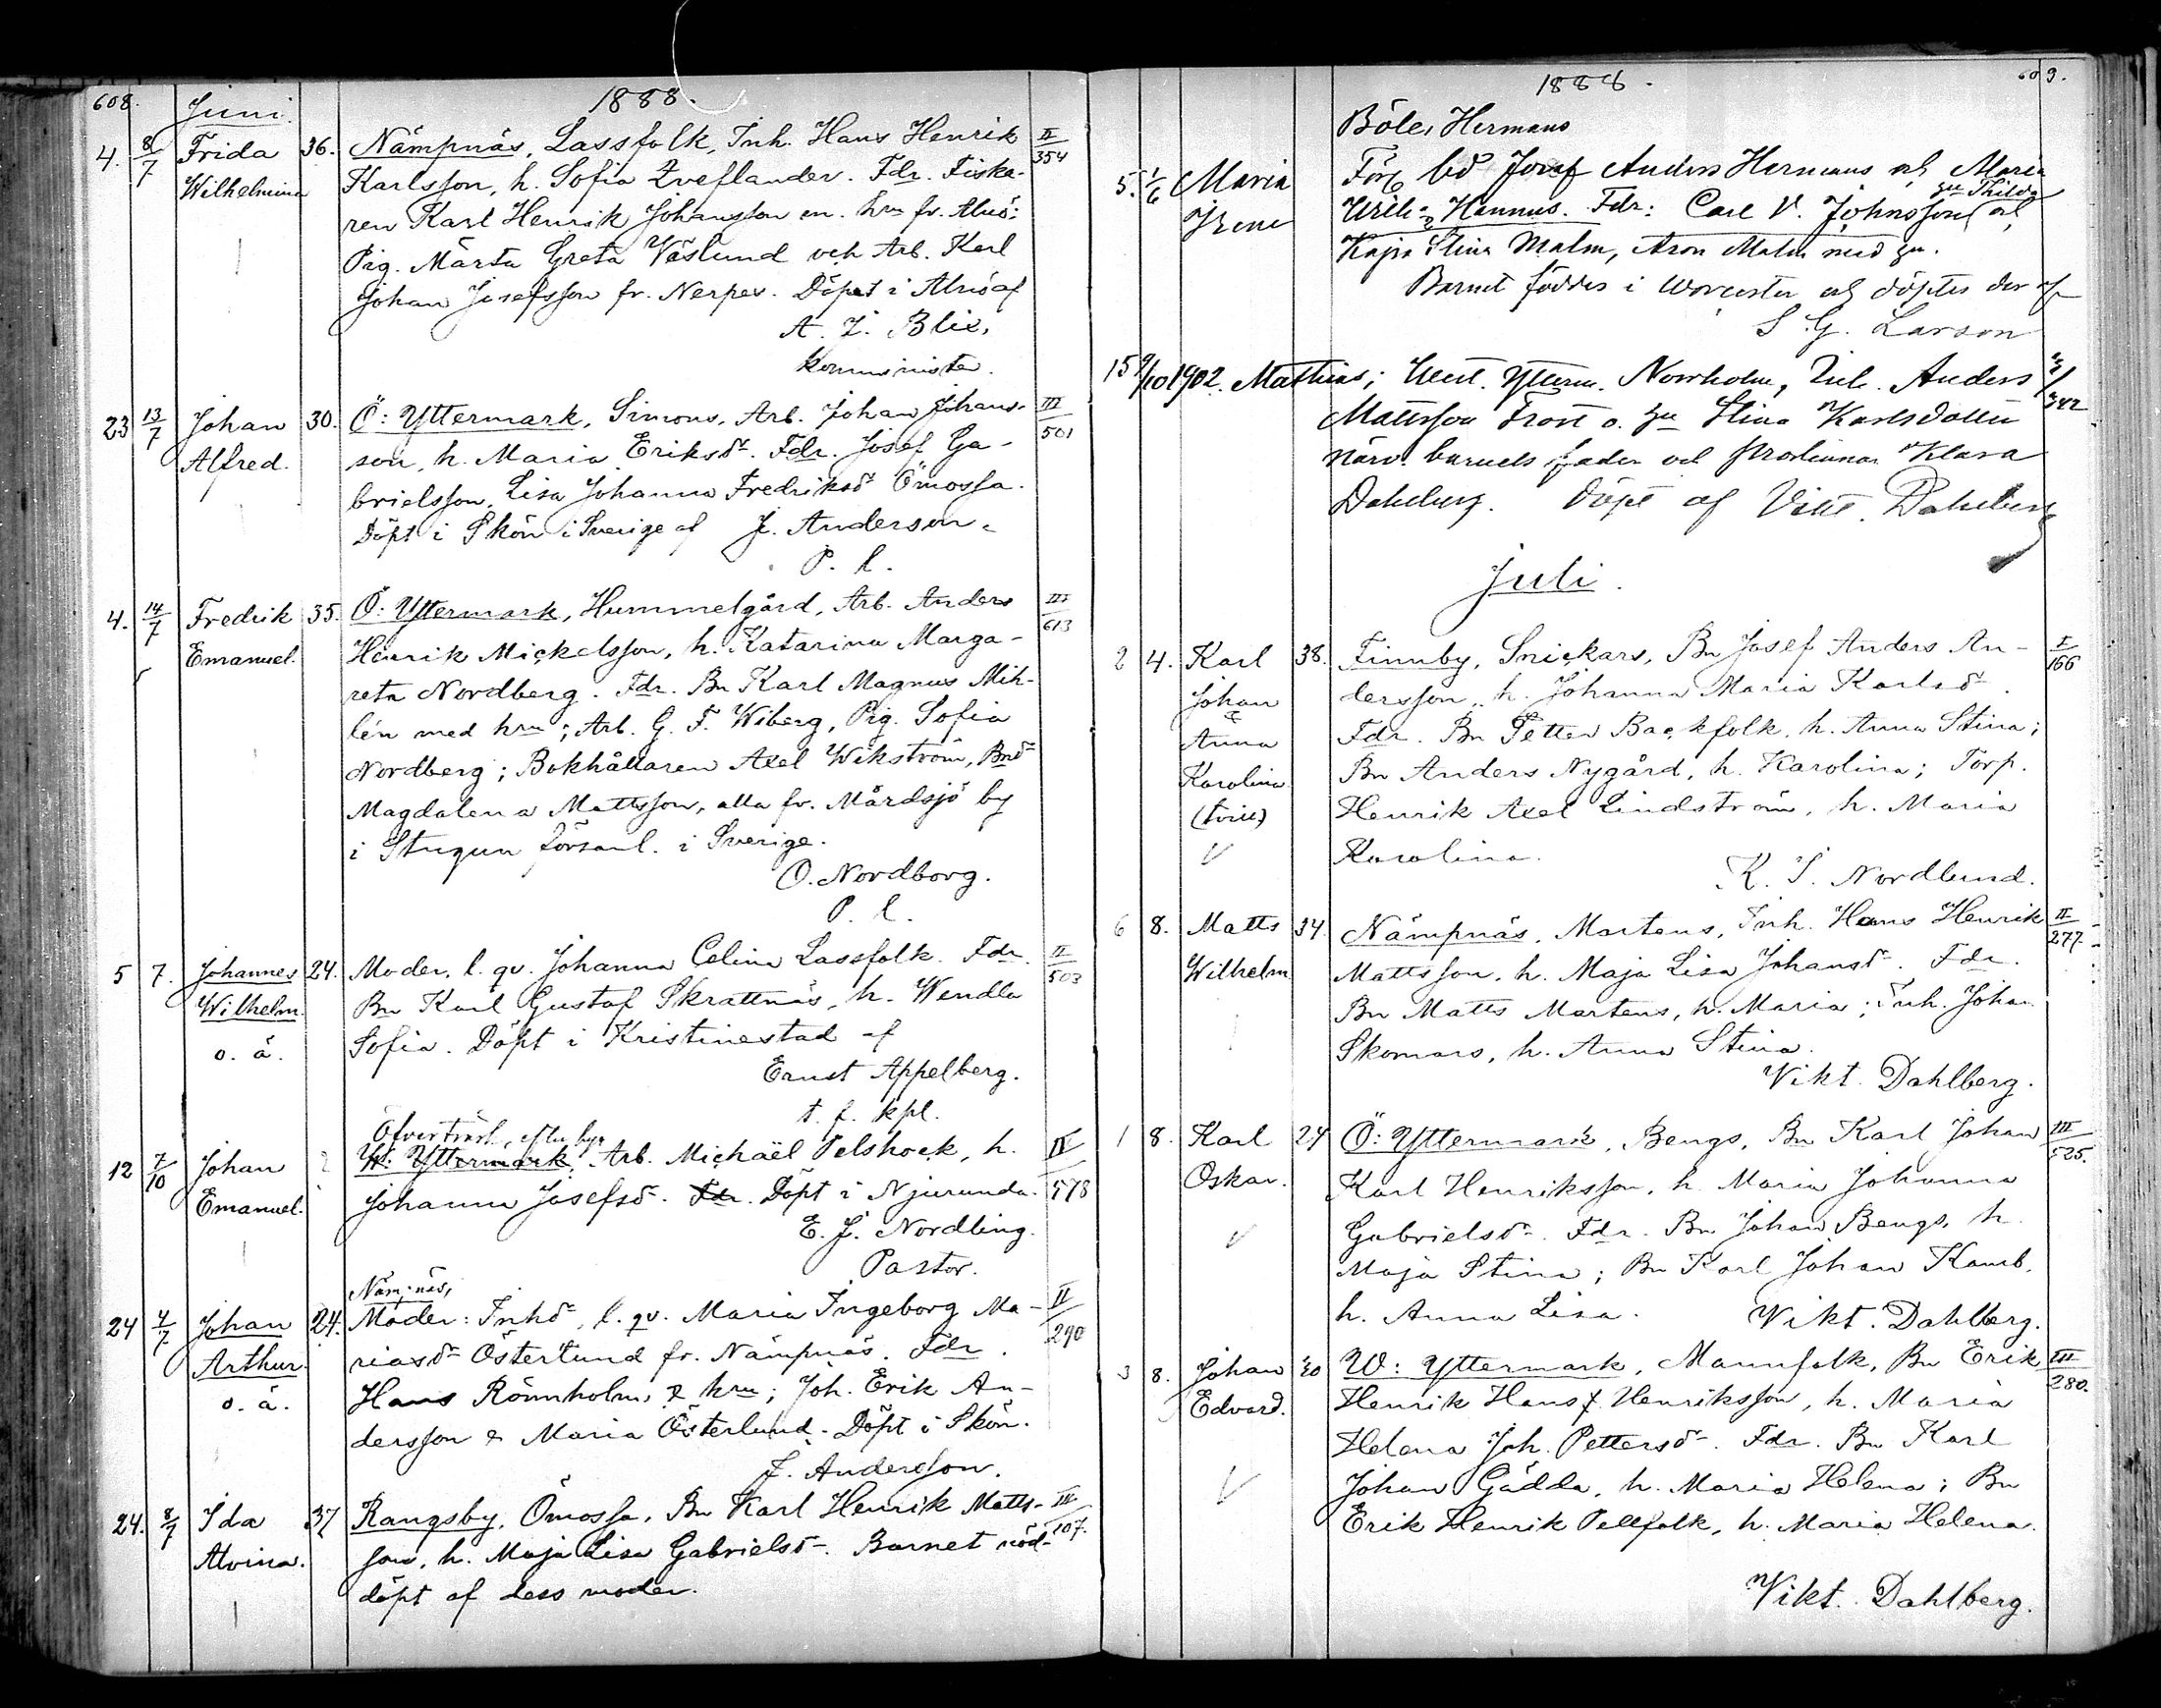 608. Juni. 1888.
4. 8/7 Frida 36. Nämpnäs, Lassfolk, Inh. Hans Henrik II/354
Wilhelmina Karlsson, h. Sofia Zveflander. Fdr. Fiska-
ren Karl Henrik Johansson m. hru fr. Alnö:
Pig. Märta Greta Väslund och Arb. Karl
Johan Josefsson fr. Nerpes. Döpt i Alnö af
A. J. Blix,
komminister.
23 13/7 Johan 30. Ö: Yttermark, Simons, Arb. Johan Johans- III/501
Alfred. son, h. Maria Eriksdr. Fdr. Josef Ga-
brielsson, Lisa Johanna Fredriksdr Ömossa.
Döpt i Skön i Sverige af J. Anderson.
P. l.
4. 14/7 Fredrik 35. Ö: Yttermark, Hummelgård, Arb. Anders III/613
Emanuel. Henrik Mickelsson, h. Katarina Marga-
reta Nordberg. Fdr. Bn Karl Magnus Mih-
lén med hru; Arb. G. F. Wiberg, Pig. Sofia
Nordberg; Bokhållaren Axel Wikström, Bndr
Magdalena Mattsson, alla fr. Mårdsjö by
i Stugun församl. i Sverige.
O. Nordborg.
P. l.
5 7. Johannes 24. Moder, l. qv. Johanna Celina Lassfolk. Fdr. II/503
Wilhelm. Bn Karl Gustaf Skrattnäs, h. Wendla
o. ä. Sofia. Döpt i Kristinestad af
Ernst Appelberg.
t. f. kpl.
Öfverträsk, efter
12 7/10 Johan W: Yttermark, Arb. Michaël Pelshock, h. IV/578
Emanuel. Johanna Josefsdr. Fdr. Döpt i Njurunda.
E. J. Nordling.
Pastor.
Nämpnäs,
24 4/7 Johan 24. Moder: Inhdr, l. qv. Maria Ingeborg Ma- II/290
Arthur. riasdr Österlund fr. Nämpnäs. Fdr.
o. ä. Hans Rönnholm, & hru; Joh. Erik An-
dersson & Maria Österlund. Döpt i Skön.
J. Andersson.
24. 8/7 Ida 37 Rangsby, Ömossa, Bn Karl Henrik Matts- III/107.
Alvina. son, h. Maja Lisa Gabrielsdr. Barnet nöd-
döpt af dess moder.
1888. 609.
Böle, Hermans
5. 1/6 Maria Anders Hermans och Maria
Irene Hannus. Fdr: Carl V. Johnsson och
Kajsa Stina Malm, Aron Malm med
Barnet föddes i Worcester och döptes der af
S. G. Larson
15 9/10 1902. Mathias; Yterm. Norrholm, Inh. Anders 342
Mattsson Frost o. Stina Karlsdotter
närv. barnets fader och Klara
Dahlberg. Döpt af Vikt. Dahlberg
Juli.
2 4. Karl 38. Finnby, Snickars, Bn Josef Anders An- I/166
Johan dersson, h. Johanna Maria Karlsdr.
& Anna Fdr. Bn Petter Backfolk, h. Anna Stina;
Karolina Bn Anders Nygård, h. Karolina; Torp.
(tvill.) Henrik Axel Lindström, h. Maria
Karolina.
K. J. Nordlund.
6 8. Matts 34. Nämpnäs, Martens, Inh. Hans Henrik II/277.
Wilhelm Mattsson, h. Maja Lisa Johansdr. Fdr.
Bn Matts Martens, h. Maria; Inh. Johan
Skomars, h. Anna Stina.
Vikt. Dahlberg.
1 8. Karl 24 Ö: Yttermark, Bengs, Bn Karl Johan III/525.
Oskar. Karl Henriksson, h. Maria Johanna
Gabrielsdr. Fdr. Bn Johan Bengs, h.
Maja Stina; Bn Karl Johan Kamb,
h. Anna Lisa. Vikt. Dahlberg.
3 8. Johan 30 W: Yttermark, Mannfolk, Bn Erik III/280.
Edvard. Henrik Hans Henriksson, h. Maria
Helena Joh. Pettersdr. Fdr. Bn Karl
Johan Gädda, h. Maria Helena; Bn
Erik Henrik Pellfolk, h. Maria Helena.
Vikt. Dahlberg.